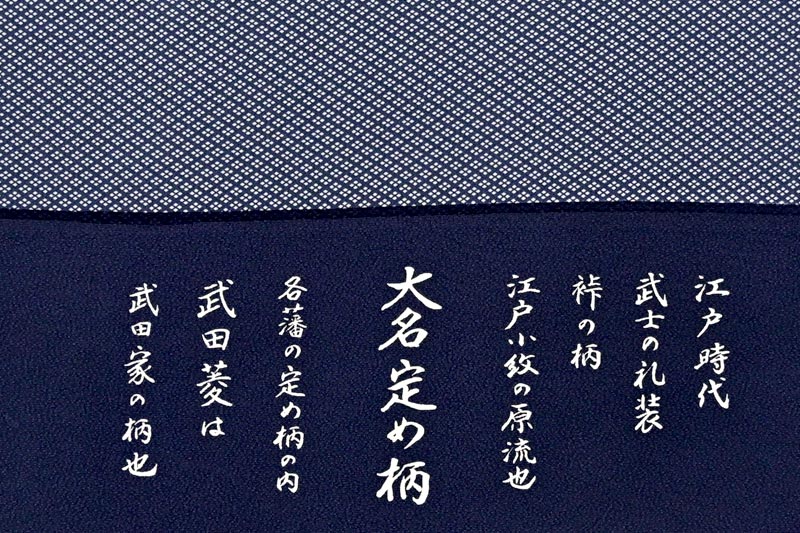 江戸時代
武士の礼装
裃の柄
江戸小紋の原流也
大名定め柄
各藩の定め柄の内
武田菱は
武田家の柄也